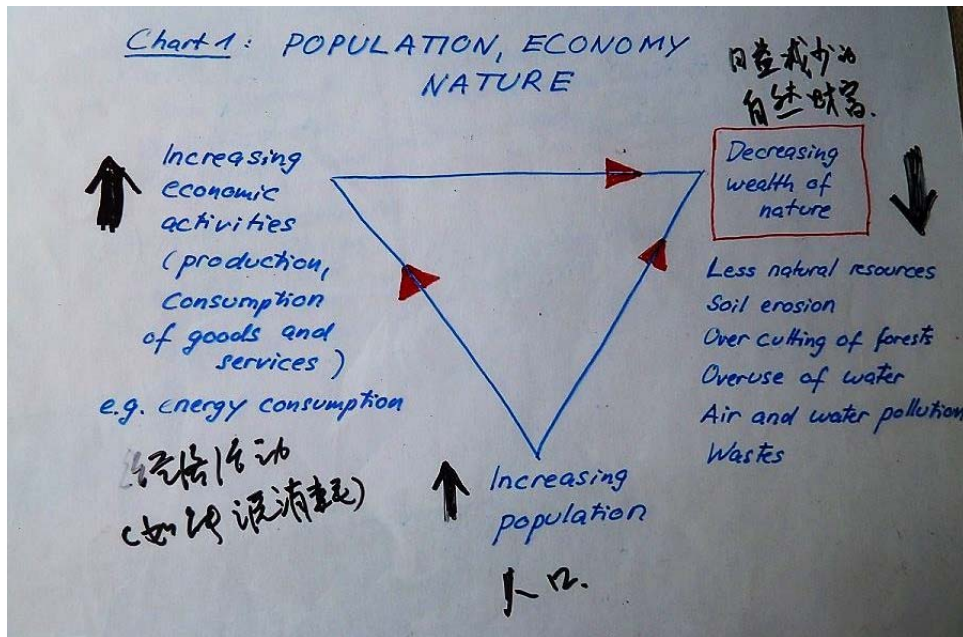 Chart 1: POPULATION, ECONOMY
NATURE
日益减少的
自然财富.
Increasing
economic
activities
(production,
Consumption
of goods and
services)
e.g. energy consumption
经济活动
(如能源消耗)
Decreasing
wealth of
nature
Less natural resources
Soil erosion
Over cutting of forests
Overuse of water
Air and water pollution
Wastes
Increasing
population
人口.